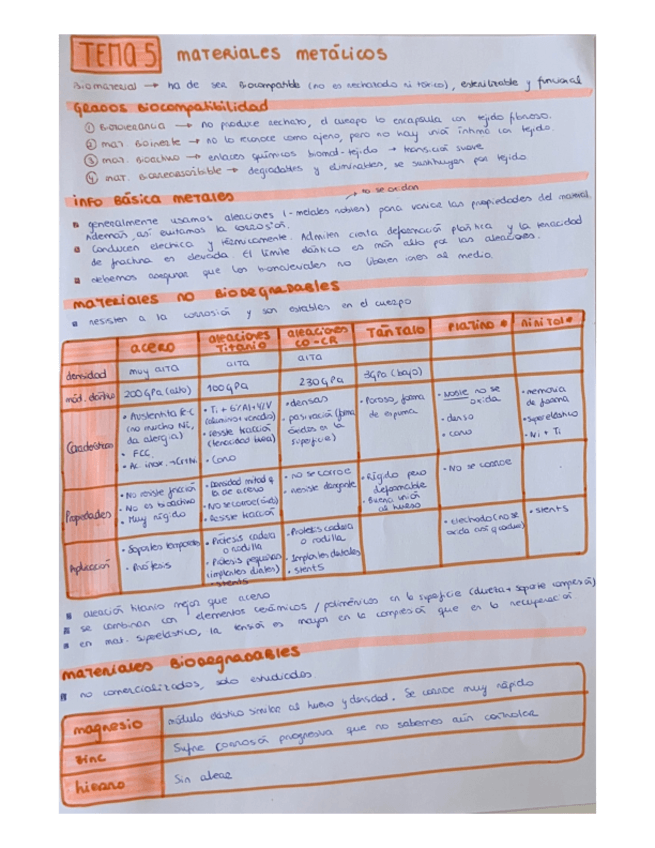 TEMA 5 MATERIALES METÁLICOS
Biomaterial → ha de ser Biocompatible (no es rechazado ni tóxico), esterilizable y funcional
GRADOS BIOCOMPATIBILIDAD
① Biotolerancia → no produce rechazo, el cuerpo lo encapsula con tejido fibroso.
② mat. Bioinerte → no lo reconoce como ajeno, pero no hay unión íntima con tejido.
③ mat. Bioactivo → enlaces químicos biomat-tejido → transición suave
④ mat. Biorreabsorbible → degradables y eliminables, se sustituyen por tejido
INFO BÁSICA METALES
→ no se oxidan
generalmente usamos aleaciones (-metales nobles) para variar las propiedades del material.
Además, así evitamos la corrosión.
Conducen eléctrica y térmicamente. Admiten cierta deformación plástica y la tenacidad
de fractura es elevada. El límite elástico es más alto por las aleaciones.
debemos asegurar que los biomateriales no liberen iones al medio.
MATERIALES NO BIODEGRADABLES
resisten a la corrosión y son estables en el cuerpo
acero aleaciones Titanio aleaciones CO-CR TÁNTALO PLATINO NINITOL
densidad muy alta alta alta
mód. elástico 200 GPa (alto) 100 GPa 230 GPa 3GPa (bajo)
Características
• Austenita Fe-C (no mucho Ni, da alergia)
• FCC
• Ac. inox. → Cr+Ni
• Ti + 6%Al+4%V (aluminio+vanadio)
• resiste tracción (tenacidad buena)
• Caro
• densas
• pasivación (forma óxidos en la superficie)
• Poroso, forma de espuma
• Noble no se oxida
• denso
• caro
• memoria de forma
• superelástico
• Ni + Ti
Propiedades
• No resiste fricción
• No es bioactivo
• Muy rígido
• Densidad mitad q la de acero
• No se corroe
• Resiste tracción
• no se corroe
• resiste desgaste
• Rígido pero deformable
• Buena unión al hueso
• No se corroe
Aplicación
• Soportes temporales
• Prótesis
• Prótesis cadera o rodilla
• Prótesis pequeñas (implantes dentales)
• stents
• Prótesis cadera o rodilla
• Implantes dentales
• stents
• electrodo (no se oxida así q no duele)
• stents
aleación titanio mejor que acero
se combinan con elementos cerámicos / poliméricos en la superficie (dureza + soporte compresión)
en mat. superelástico, la tensión es mayor en la compresión que en la recuperación.
MATERIALES BIODEGRADABLES
no comercializados, solo estudiados
magnesio módulo elástico similar al hueso y densidad. Se corroe muy rápido
zinc Sufre corrosión progresiva que no sabemos aún controlar
hierro Sin alear